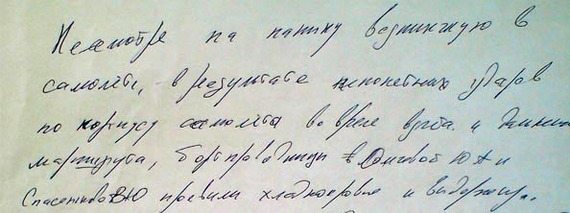 Несмотре на панику возникшую в
самолёте, в результате непонетных ударов
по корпусу самолёта во время взлёта и
маршрута, бортпроводницы Ю А и
Спасенкова ВЮ проявили хладнокровие и выдержку.